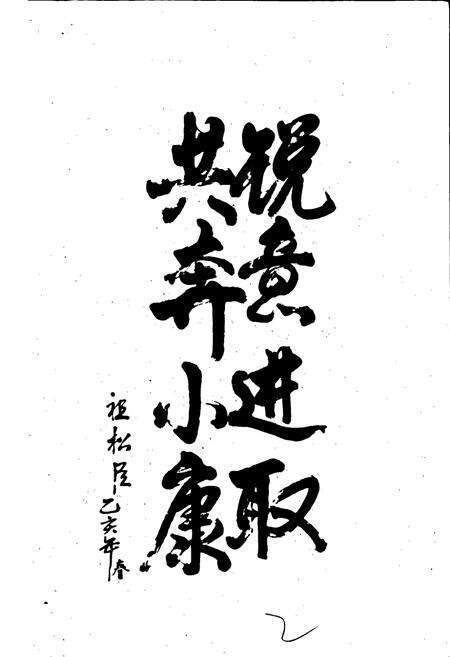 锐意进取
共奔小康
祖松臣乙亥年春